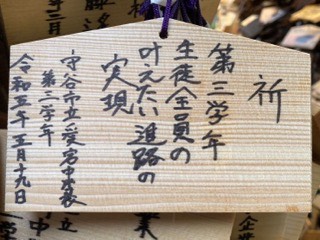 祈
第三学年
生徒全員の
叶えたい進路の
実現
守谷市立愛宕中学校
第三学年
令和五年五月十九日